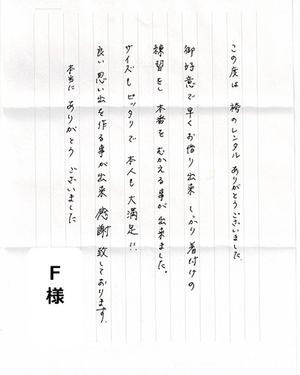 この度は 袴のレンタル ありがとうございました。
御好意で早くお借り出来、しっかり着付けの
練習をし 本番を むかえる事が 出来ました。
サイズも ピッタリで 本人も 大満足!!
良い思い出を作る事が出来 感謝致しております。
本当に ありがとう ございました
F様